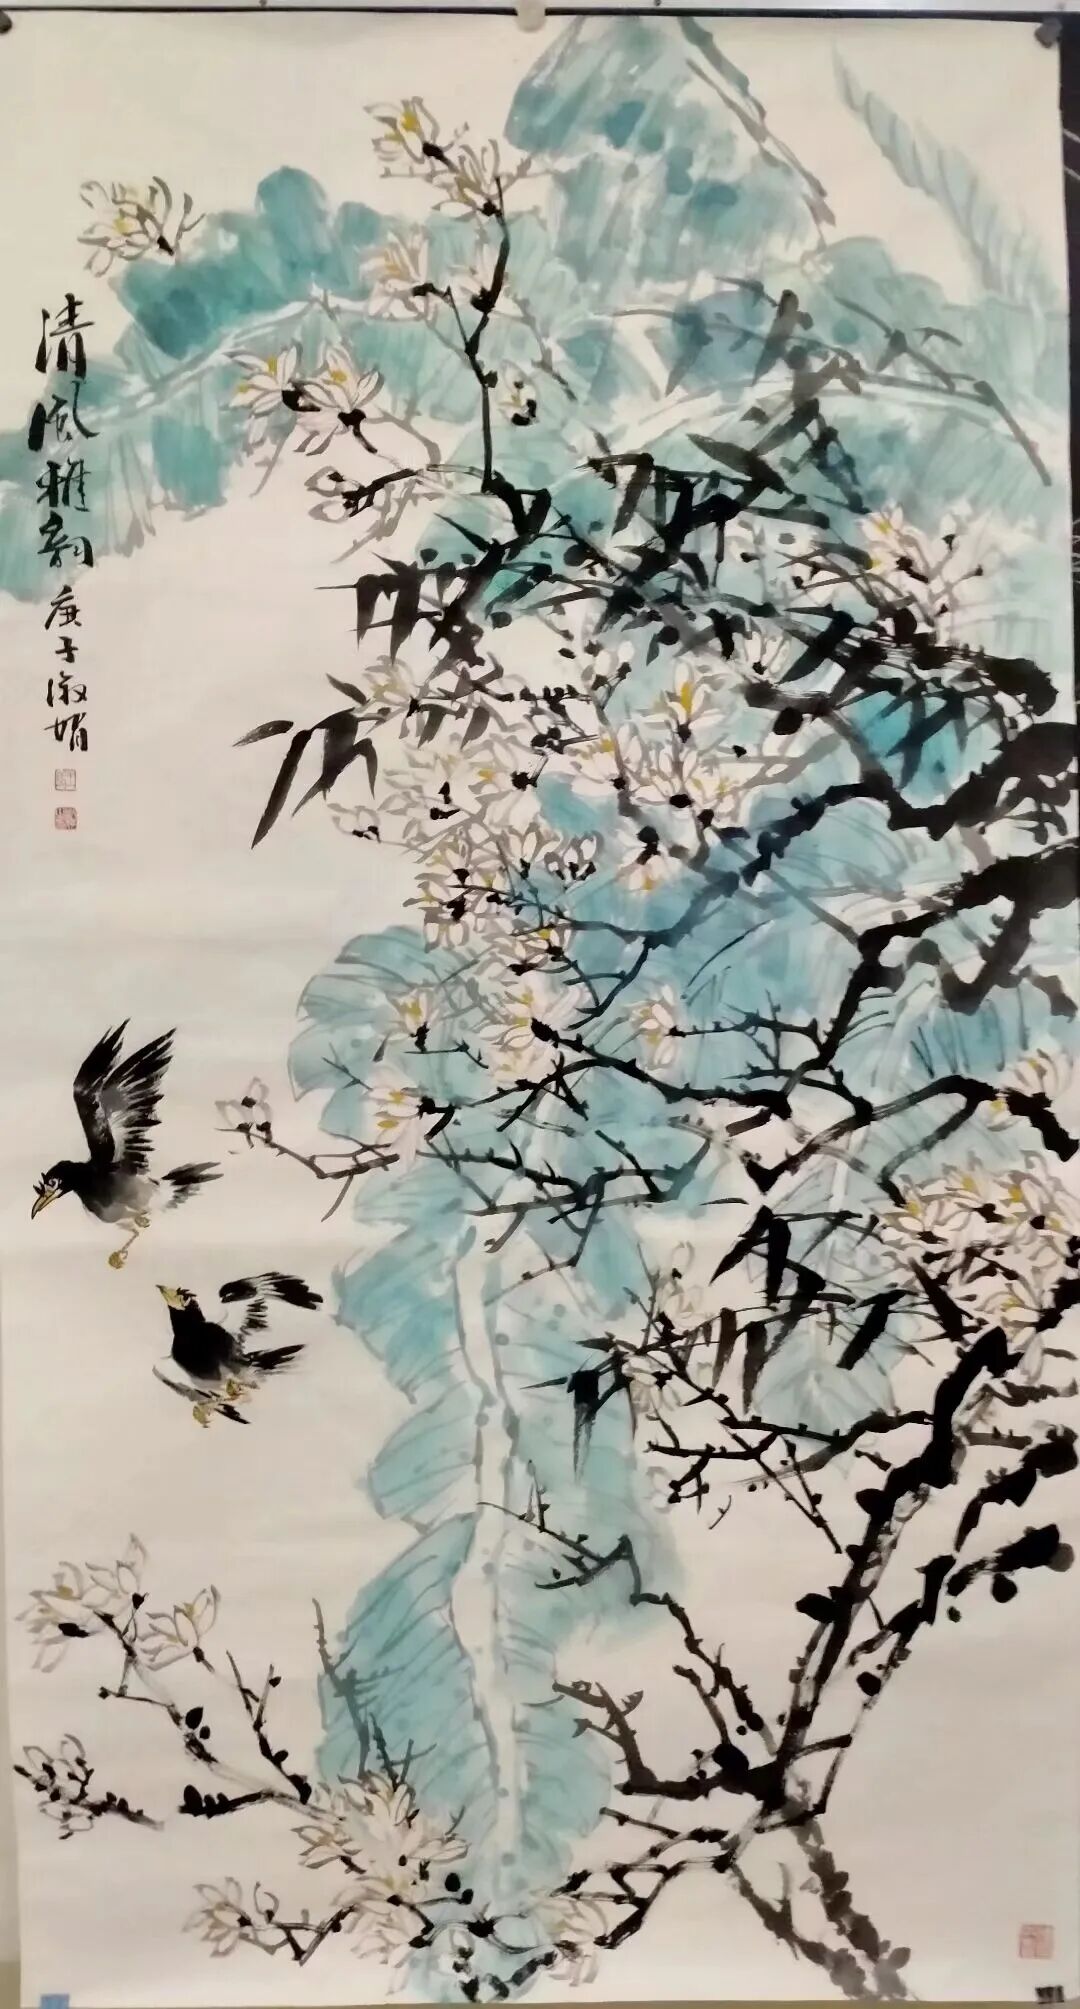 清风雅韵
庚子淑娟